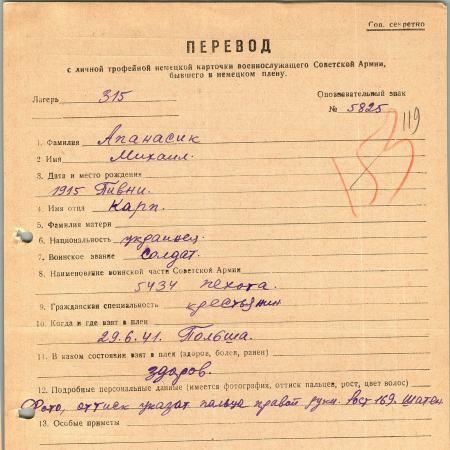 Сов. секретно
ПЕРЕВОД
с личной трофейной немецкой карточки военнослужащего Советской Армии,
бывшего в немецком плену.
Лагерь 315
Опознавательный знак
№ 5825
119
153
1. Фамилия Апанасик
2 Имя Михаил.
3. Дата и место рождения
1915 Пивни.
4. Имя отца Карп.
5. Фамилия матери
6. Национальность украинец.
7. Воинское звание солдат.
8. Наименование воинской части Советской Армии
5434 пехота.
9. Гражданская специальность крестьянин
10. Когда и где взят в плен
29.6.41. Польша.
11. В каком состоянии взят в плен (здоров, болен, ранен)
здоров.
12. Подробные персональные данные (имеется фотография, оттиск пальцев, рост, цвет волос)
Фото, оттиск указат. пальца правой руки. Рост 169. Шатен.
13. Особые приметы